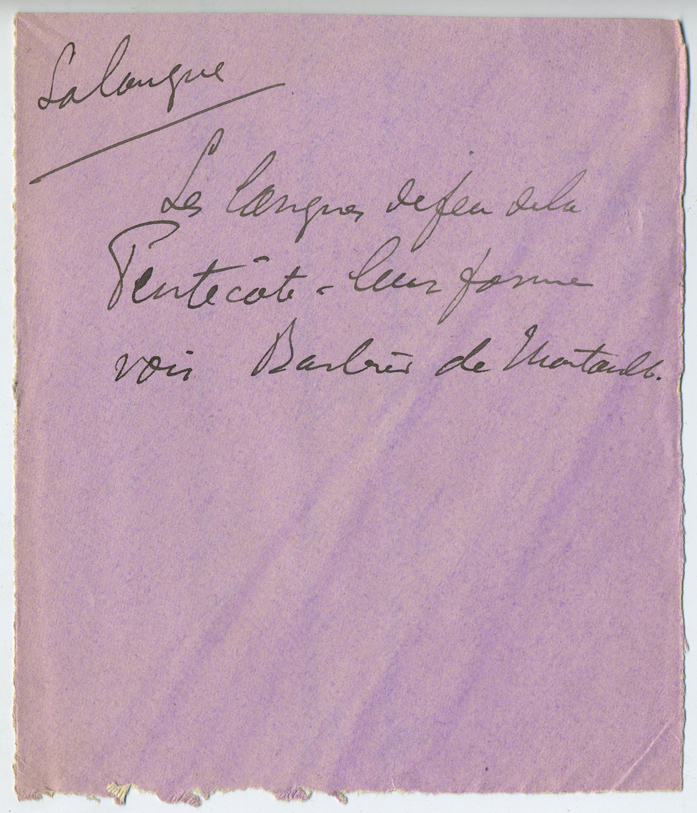 La langue
Les langues de feu de la
Pentecôte - leur forme
voir Barbier de Montault.